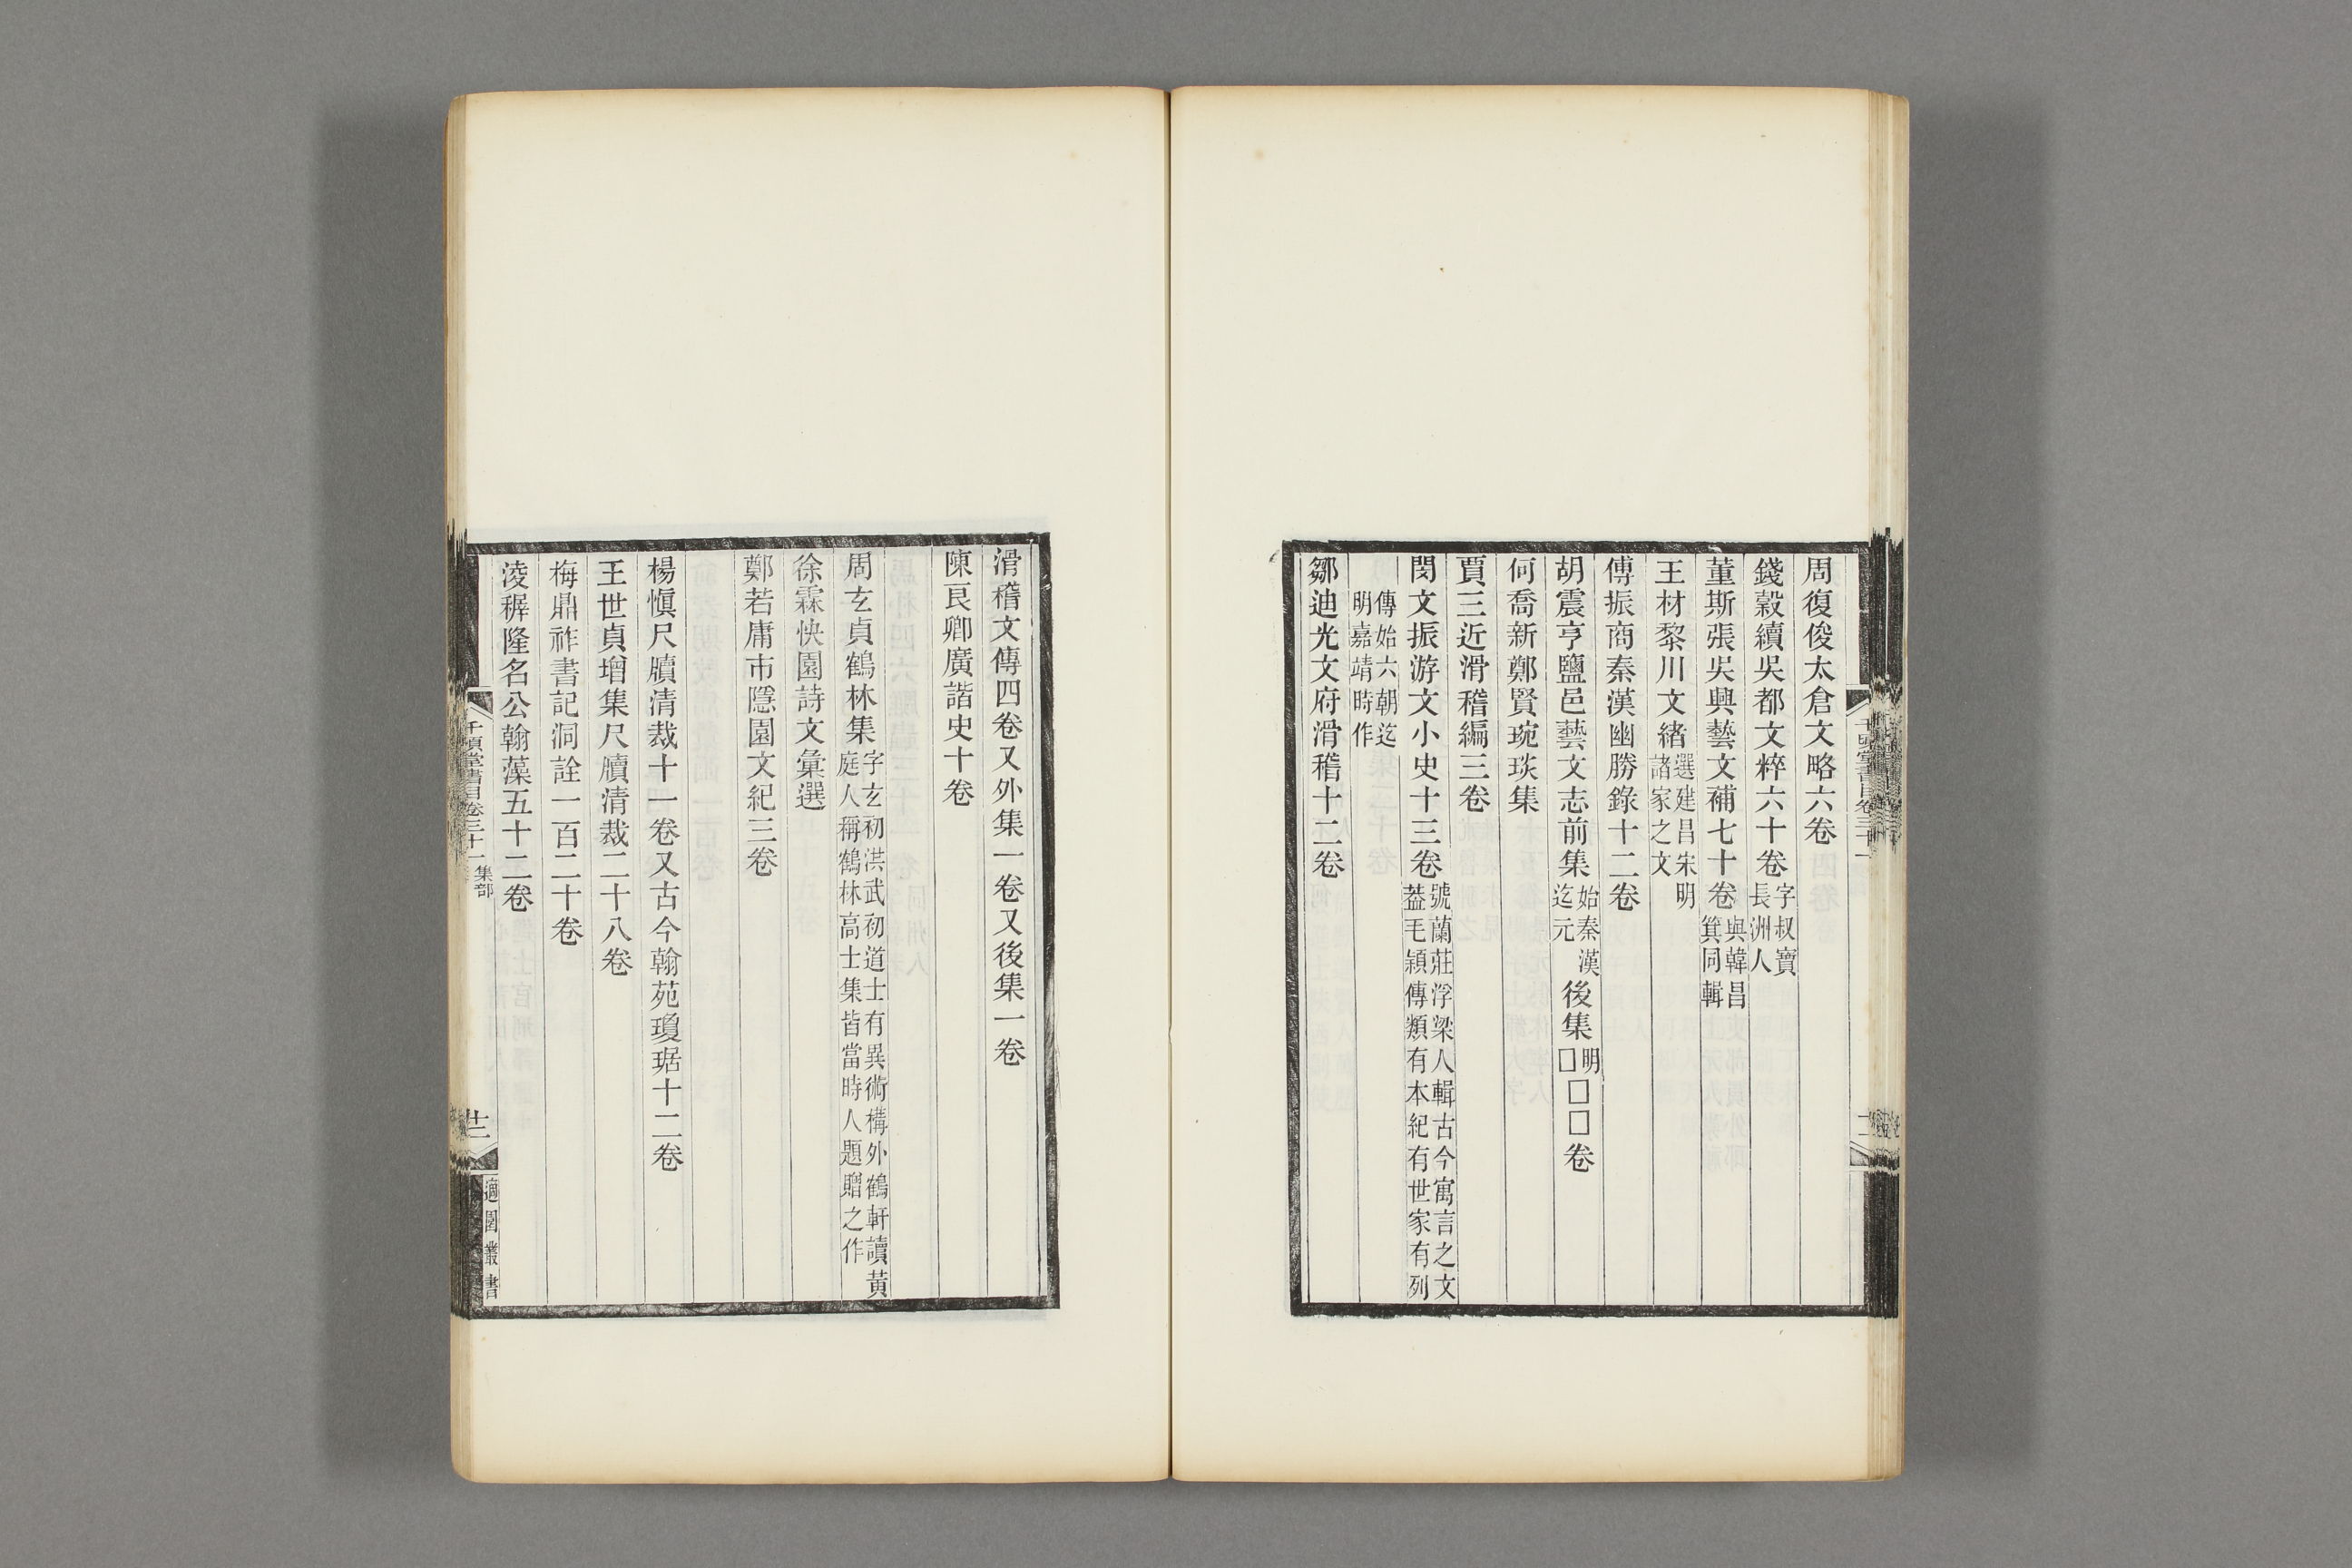 周復俊太倉文略六卷
錢穀續吳都文粹六十卷字叔寶長洲人
董斯張吳興藝文補七十卷與韓昌箕同輯
王材黎川文緒選建昌宋明諸家之文
傅振商秦漢幽勝錄十二卷
胡震亨鹽邑藝文志前集始秦漢迄元後集明□□□卷
何喬新鄭賢琬琰集
賈三近滑稽編三卷
閔文振游文小史十三卷號蘭莊浮梁人輯古今寓言之文葢毛頴傳類有本紀有世家有列
傳始六朝迄明嘉靖時作
鄒迪光文府滑稽十二卷
滑稽文傳四卷又外集一卷又後集一卷
陳艮卿廣諧史十卷
周玄貞鶴林集字玄初洪武初道士有異術構外鶴軒讀黃庭人稱鶴林高士集皆當時人題贈之作
徐霖快園詩文彙選
鄭若庸市隱園文紀三卷
楊愼尺牘清裁十一卷又古今翰苑瓊琚十二卷
王世貞增集尺牘清裁二十八卷
梅鼎祚書記洞詮一百二十卷
淩穉隆名公翰藻五十二卷
千頃堂書目卷三十一 集部
十二
適園叢書